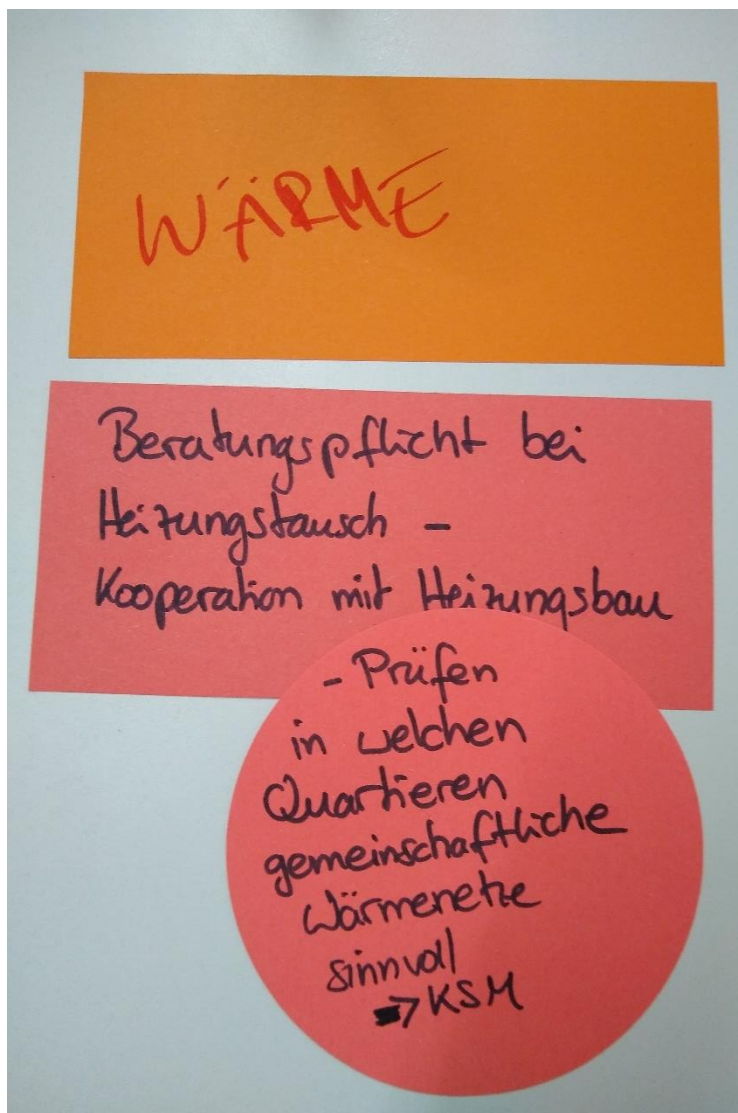 WÄRME
Beratungspflicht bei
Heizungstausch –
Kooperation mit Heizungsbau
- Prüfen
in welchen
Quartieren
gemeinschaftliche
Wärmenetze
sinnvoll
→ KSM